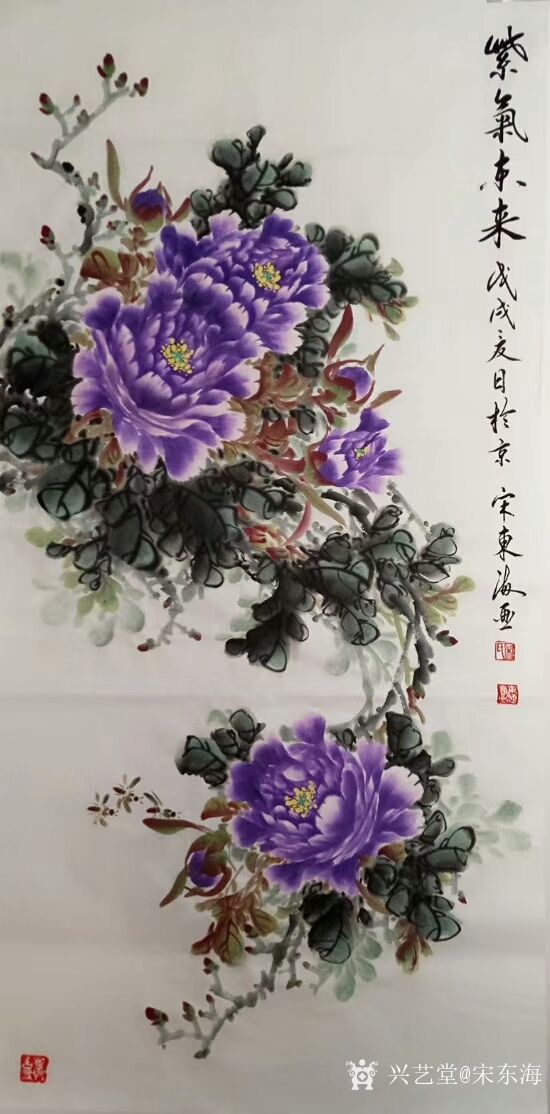 紫氣东来
戊戌夏日於京 宋東海画
兴艺堂@宋东海